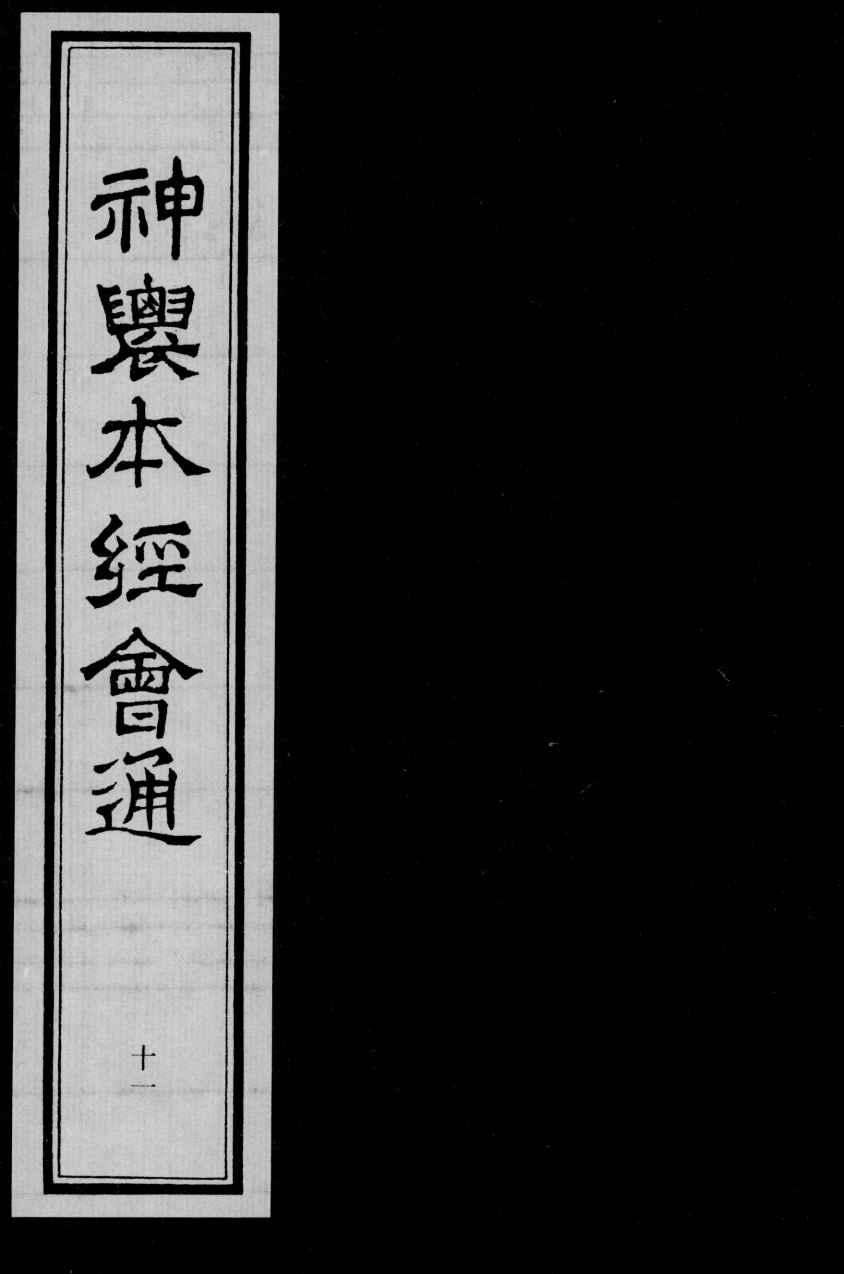 神農本經會通
十一